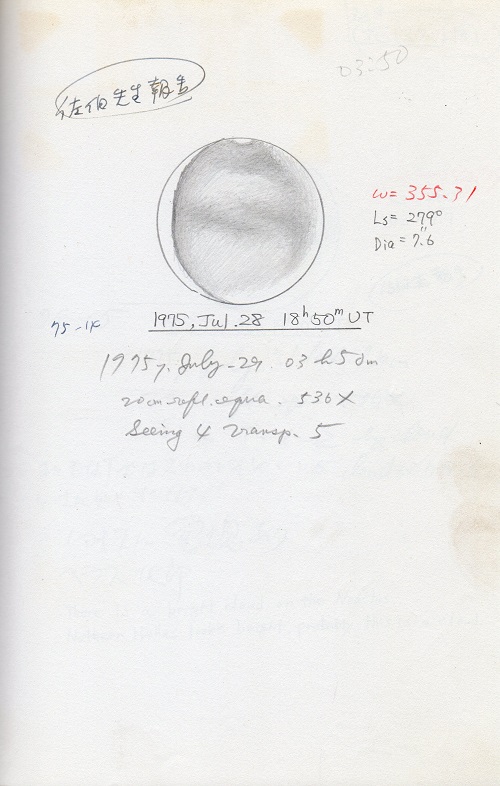 03:50
佐伯先生報告
ω= 355.31
Ls= 279°
Dia = 7.″6
75-14
1975, Jul. 28 18h50m UT
1975, July. 29. 03h50m
20cm refl. equa. 536X
Seeing 4 Transp. 5